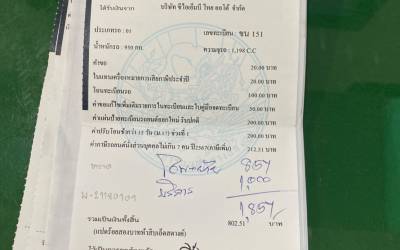 ได้รับเงินจาก บริษัท ซีไอเอ็มบี ไทย ออโต้ จำกัด
ประเภทรถ : 01 เลขทะเบียน : ขน 151
น้ำหนักรถ : 930 กก. ความจุรถ : 1,198 C.C
ค่าขอ 20.00 บาท
ใบแทนเครื่องหมายการเสียภาษีประจำปี 20.00 บาท
โอนทะเบียนรถ 100.00 บาท
ค่าขอแก้ไขเพิ่มเติมรายการในทะเบียนและใบคู่มือจดทะเบียน 50.00 บาท
ค่าแผ่นป้ายทะเบียนรถยนต์ออกใหม่ รับปกติ 200.00 บาท
ค่าปรับโอนช้ากว่า 15 วัน (ม.17) ช่วงที่ 1 200.00 บาท
ค่าภาษีรถยนต์นั่งส่วนบุคคลไม่เกิน 7 คน ปี2567(ภาษีเพิ่ม) 212.51 บาท
857
บริการ 1,000
1,857
รวมเป็นเงินทั้งสิ้น 802.51 บาท
(แปดร้อยสองบาทห้าสิบเอ็ดสตางค์)